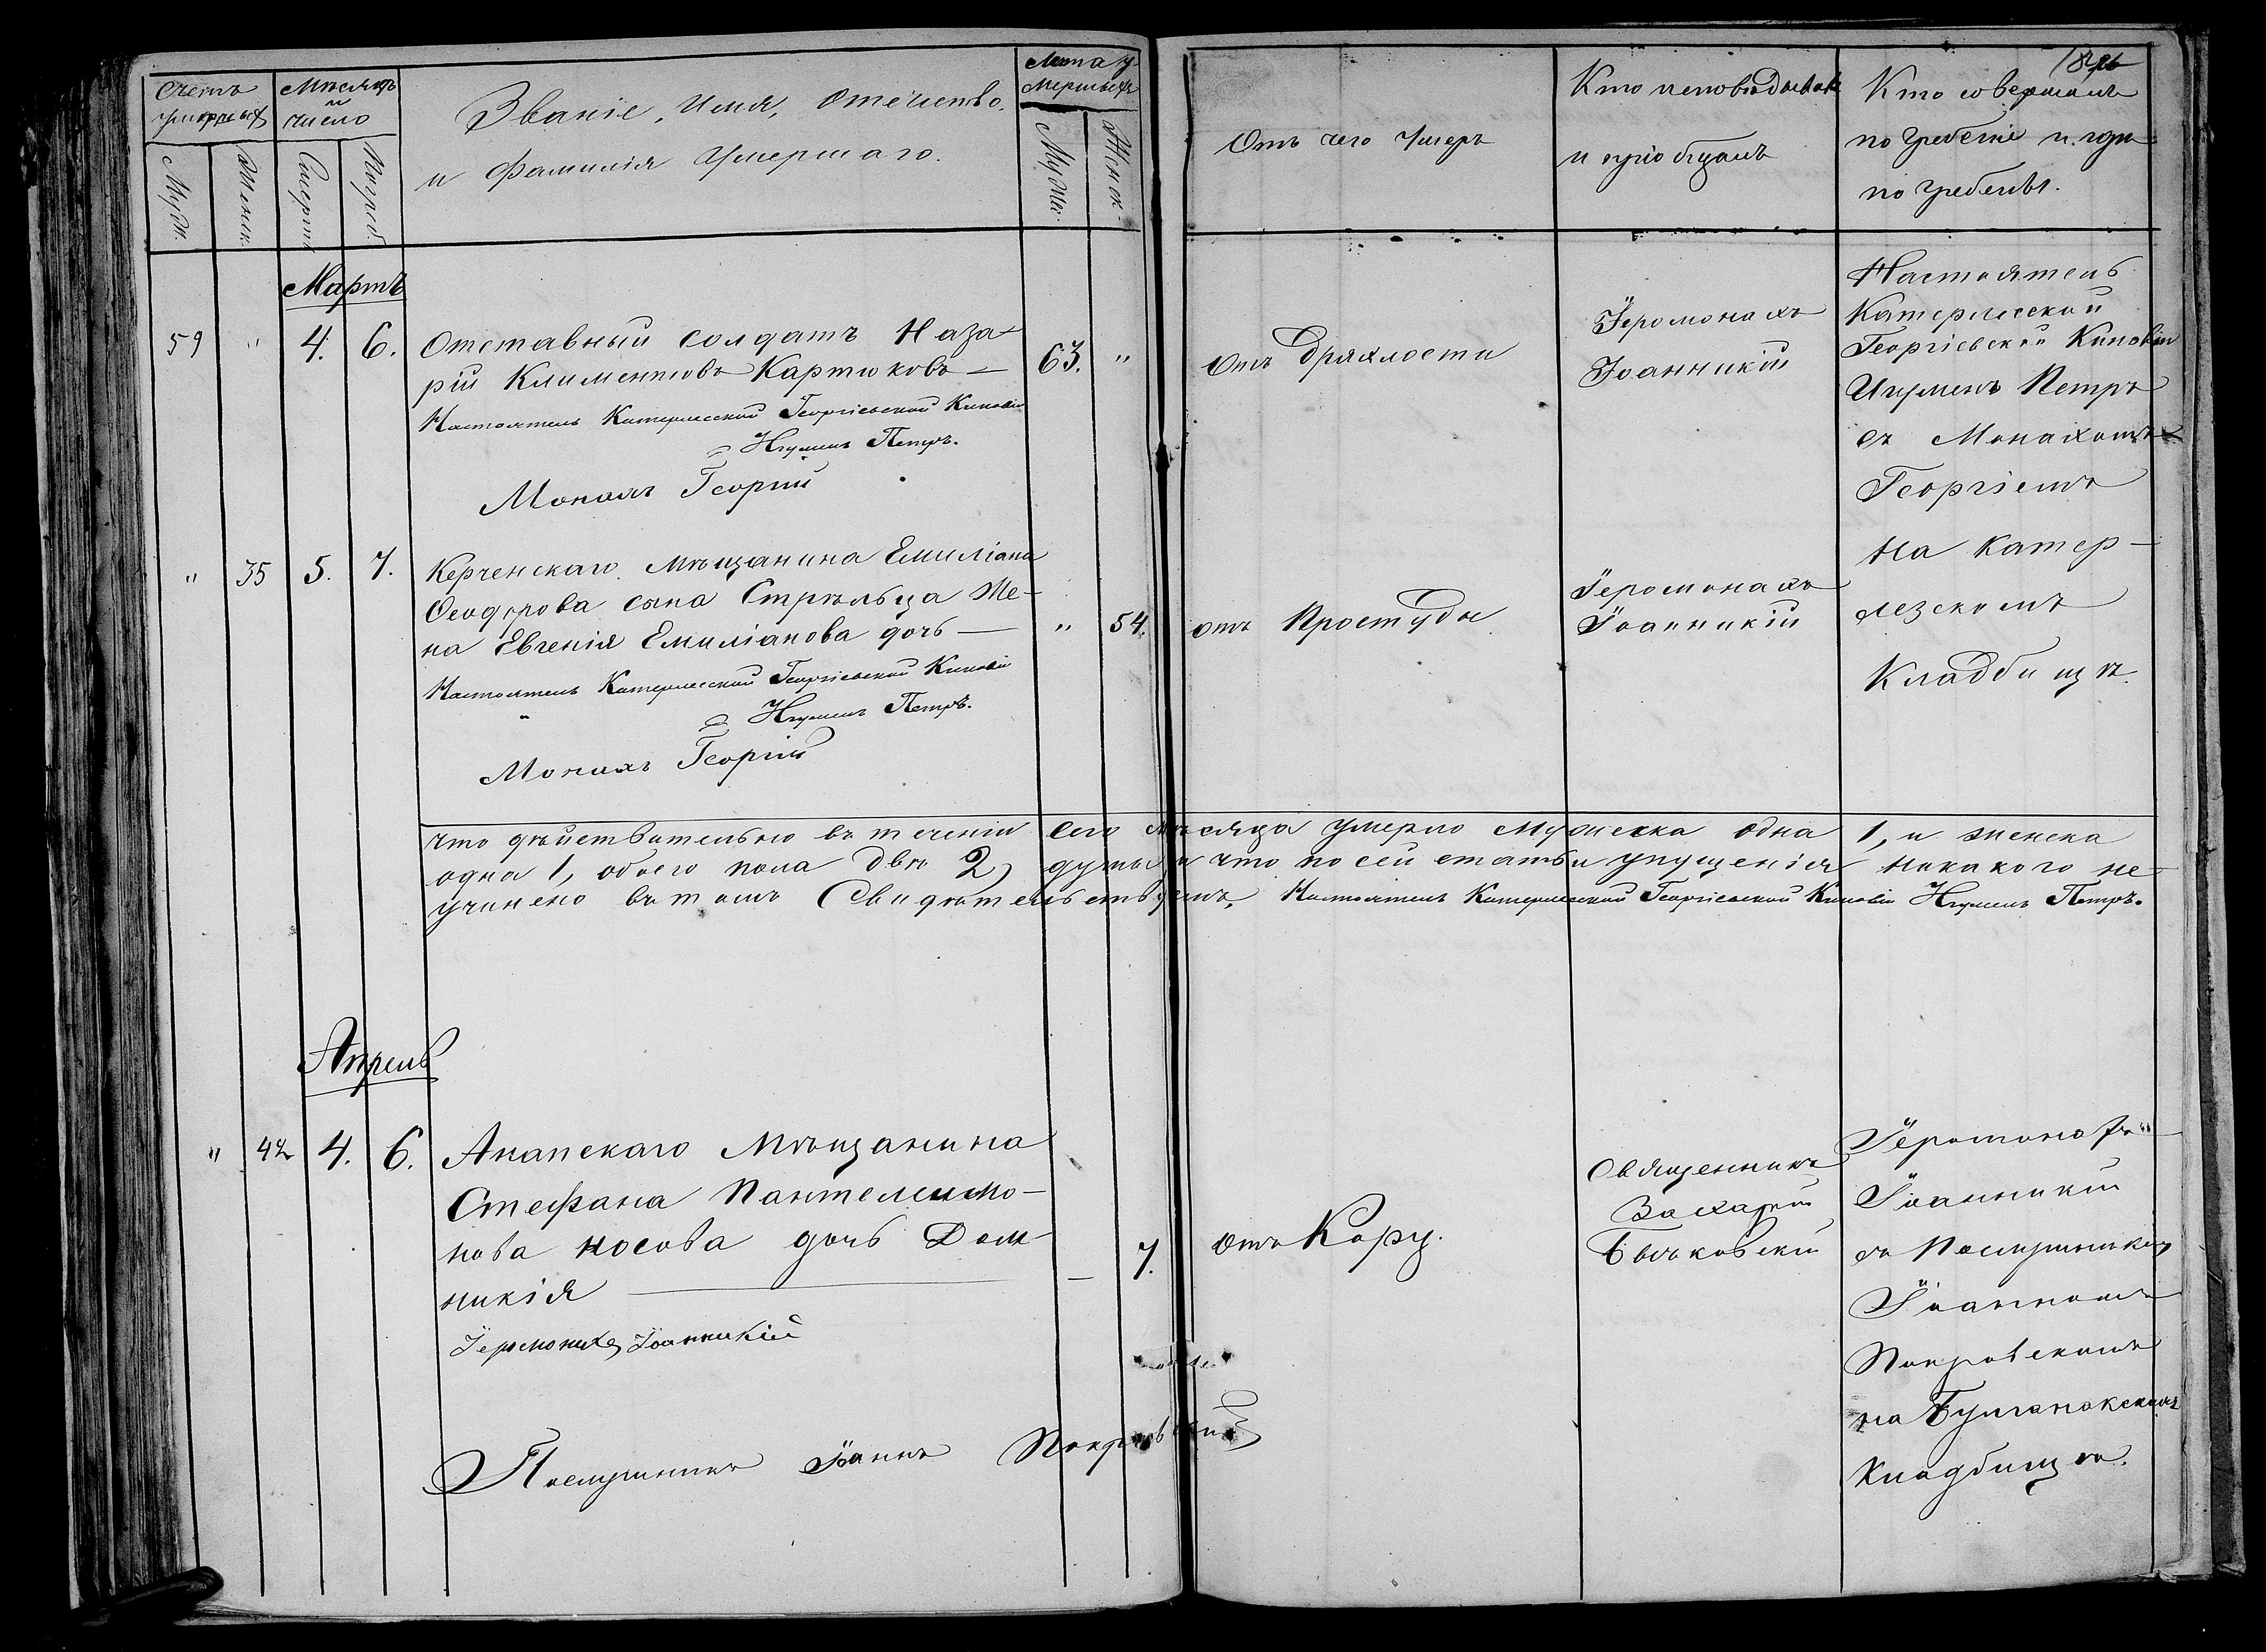 Счетъ умершыхъ
Мѣсяцъ и число
Званіе, Имя, Отечество,
и Фамилія Умершаго.
Лета у-
мершыхъ
Муж.
Женск.
Смерти
Погреб.
Муж.
Женск.
Отъ чего Умеръ
Кто исповѣдывалъ
и пріобщалъ
Кто совершалъ
погребеніе и гдѣ
погребены.
Мартъ
59 " 4. 6.
Отставный солдатъ Наза-
рій Климентовъ Картюковъ —
63. "
Отъ Дряхлости
Іеромонахъ
Іоанникій
Настоятель
Катерлесской
Георгіевской Киновіи
Игуменъ Петръ
съ Монахомъ
Георгіемъ
На Катер-
лезскомъ
Кладбищѣ.
Настоятель Катерлесской Георгіевской Киновіи
Игуменъ Петръ.
Монахъ Георгий
" 35 5. 7.
Керченскаго Мѣщанина Емиліана
Ѳеодорова сына Стрѣльца Же-
на Евгенія Емиліанова дочь —
" 54.
отъ Простуды
Іеромонахъ
Іоанникій
Настоятель Катерлесской Георгіевской Киновіи
Игуменъ Петръ.
Монахъ Георгій
Что дѣйствительно въ теченіи сего мѣсяца умерло мужеска одна 1, и женска
одна 1, обоего пола двѣ 2 душы и что по сей статьи упущенія никакого не
учинено въ томъ Свидѣтельствуемъ. Настоятель Катерлесской Георгіевской Киновіи Игуменъ Петръ.
Апрель
" 42 4. 6.
Анапскаго Мѣщанина
Стефана Пантелеимо-
нова Носова дочь Дом-
никія
— 7.
отъ Кору.
Священникъ
Захарій
Іеромонахъ
Іоанникій
съ Послушникомъ
Іоанномъ
Покровскимъ
на Булганакскомъ
Кладбищѣ.
Іеромонахъ Іоанникій
Послушникъ Іоаннъ Покровскій